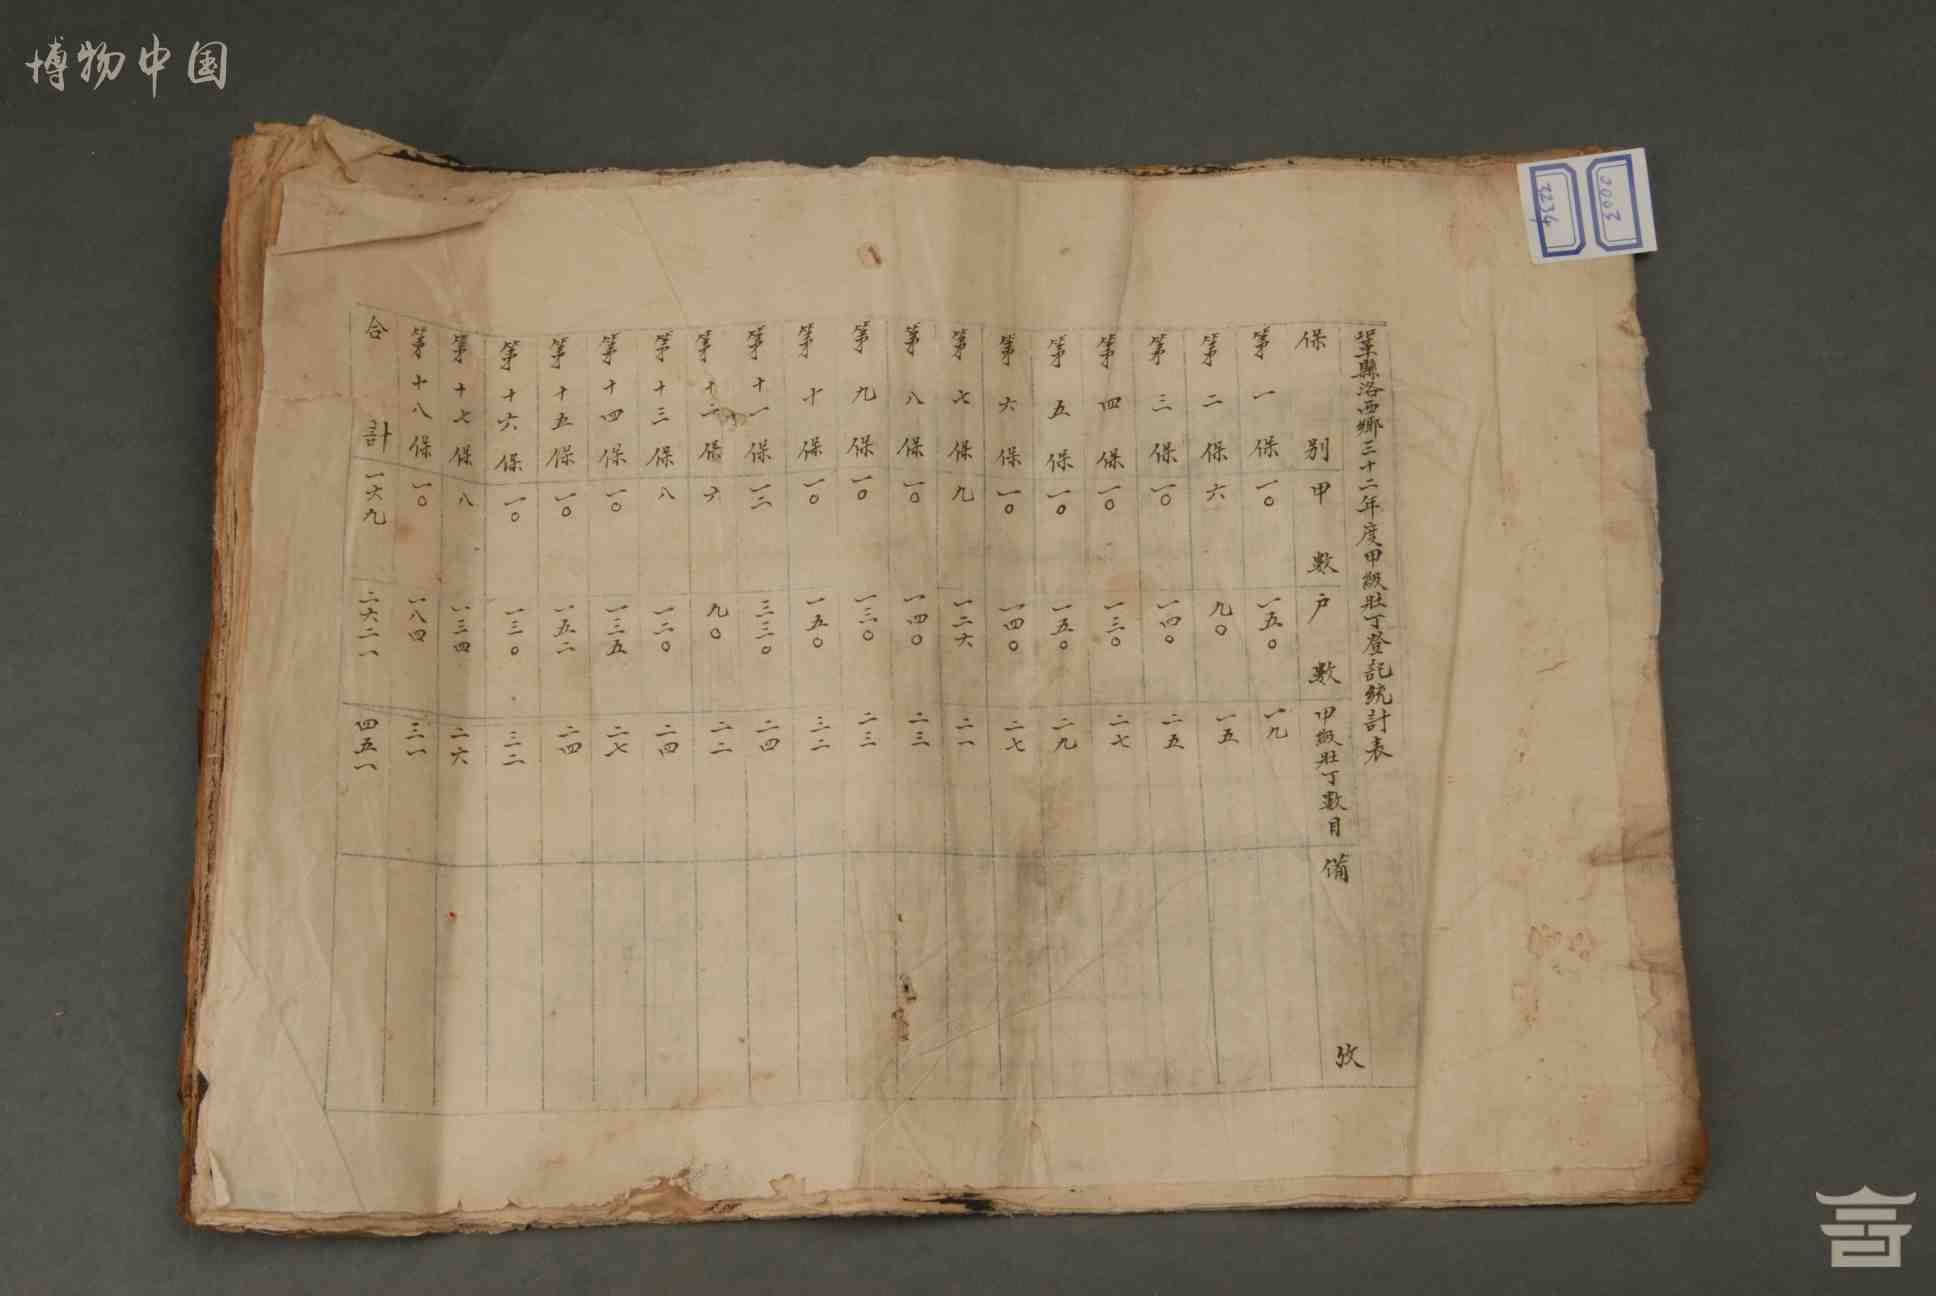 博物中国
鞏縣洛西鄉三十二年度甲級壯丁登記統計表
保別 甲數 戶數 甲級壯丁數目 備攷
第一保 一〇 一五〇 一九
第二保 六 九〇 一五
第三保 一〇 一四〇 二五
第四保 一〇 一三〇 二七
第五保 一〇 一五〇 二九
第六保 一〇 一四〇 二七
第七保 九 一二六 二一
第八保 一〇 一四〇 二三
第九保 一〇 一三〇 二三
第十保 一〇 一五〇 三二
第十一保 一二 三三〇 二四
第十二保 六 九〇 二二
第十三保 八 一二〇 二四
第十四保 一〇 一三五 二七
第十五保 一〇 一五二 二四
第十六保 一〇 一三〇 三二
第十七保 八 一三四 二六
第十八保 一〇 一八四 三一
合計 一六九 二六二一 四五一